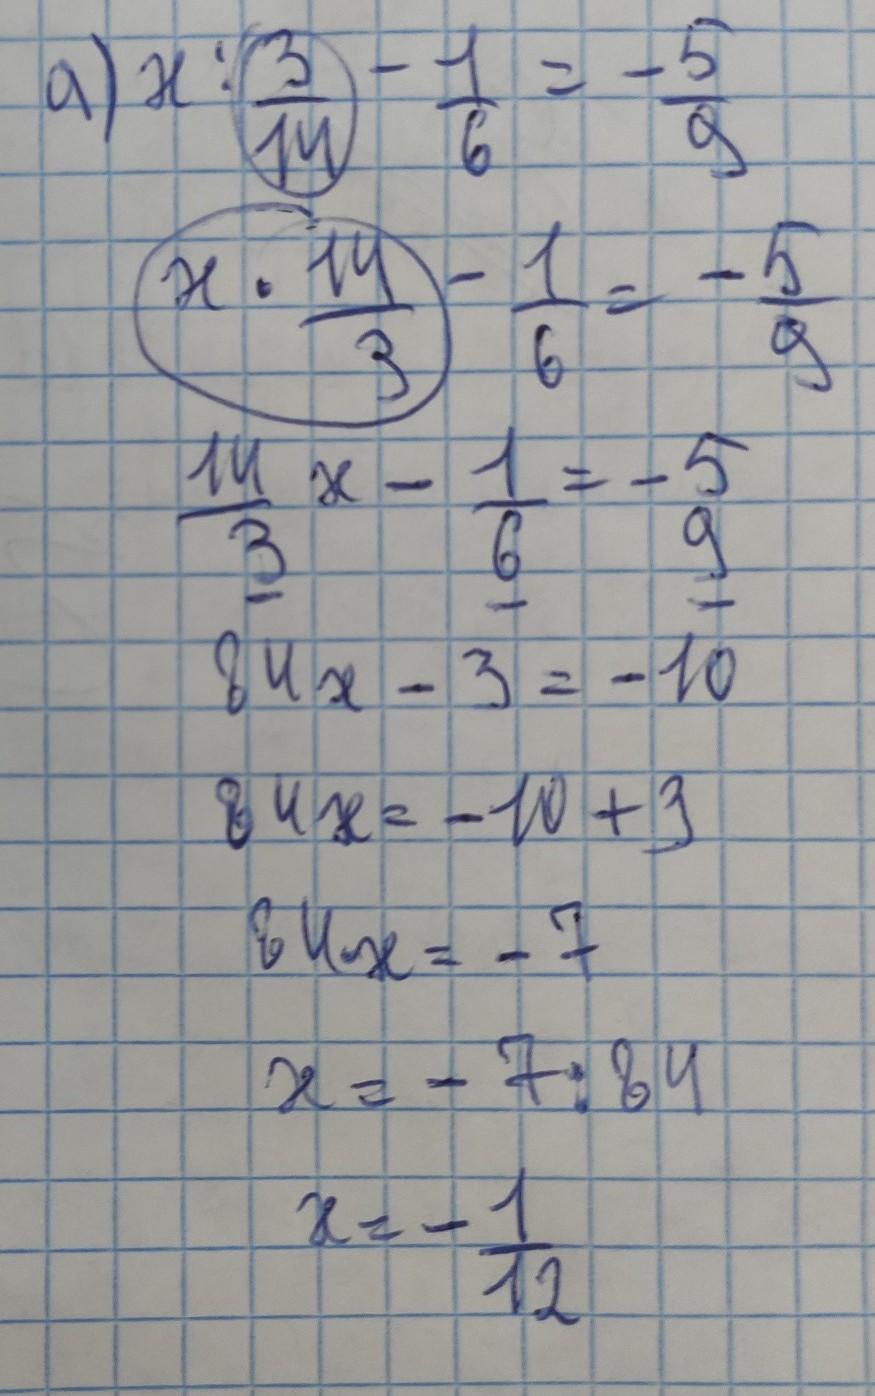 а) x : 3/14 - 1/6 = - 5/9
x · 14/3 - 1/6 = - 5/9
14/3 x - 1/6 = - 5/9
84x - 3 = - 10
84x = - 10 + 3
84x = - 7
x = - 7 : 84
x = - 1/12